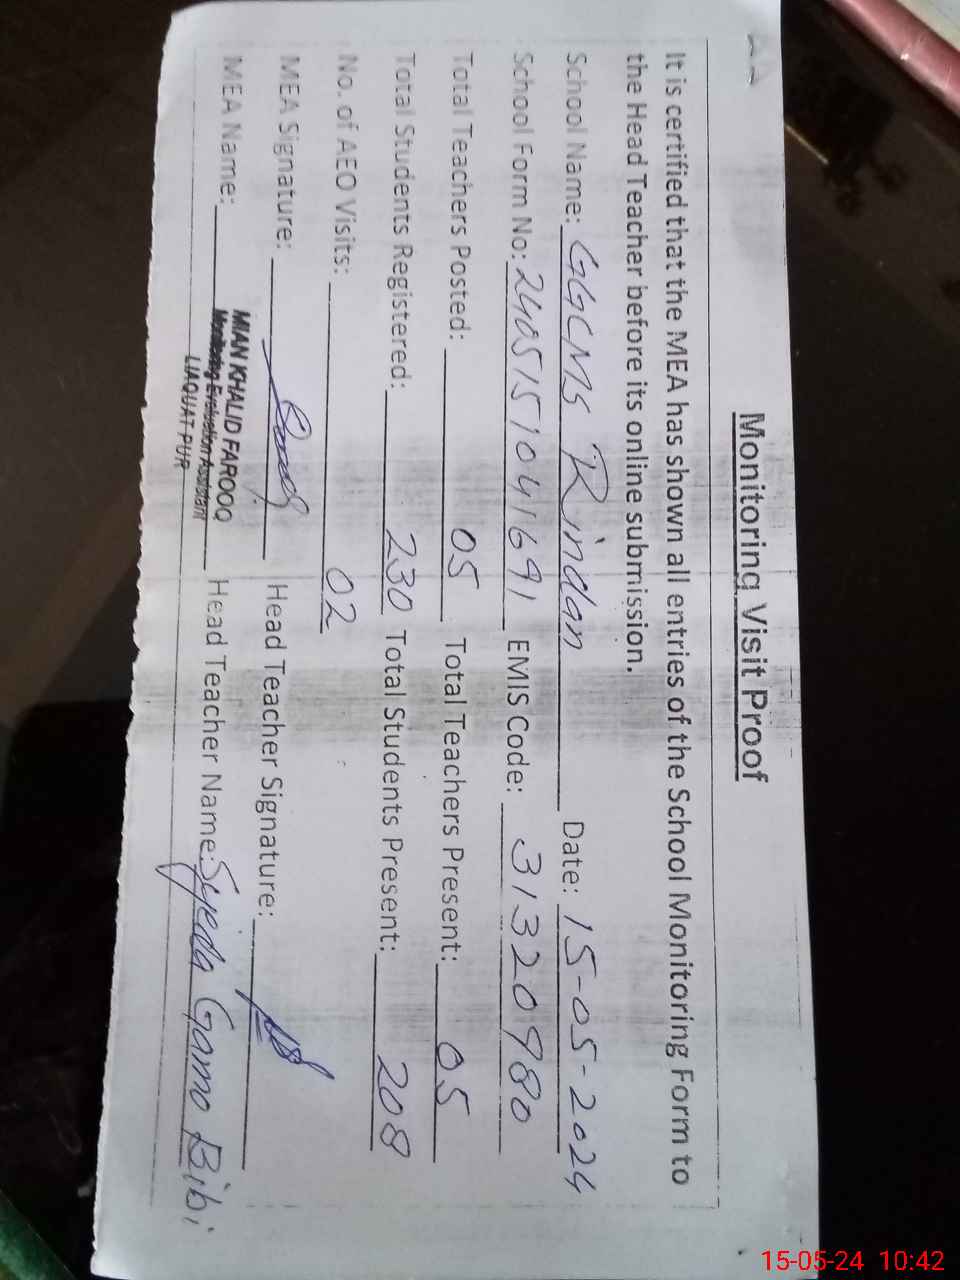 Monitoring Visit Proof
It is certified that the MEA has shown all entries of the School Monitoring Form to
the Head Teacher before its online submission.
School Name: GGCMS Rindan Date: 15-05-2024
School Form No: 2405151041691 EMIS Code: 31320980
Total Teachers Posted: 05 Total Teachers Present: 05
Total Students Registered: 230 Total Students Present: 208
No. of AEO Visits: 02
MEA Signature: Head Teacher Signature:
MEA Name: MIAN KHALID FAROOQ Head Teacher Name: Syeda Gamo Bibi
Monitoring Evaluation Assistant
LIAQUAT PUR
15-05-24 10:42